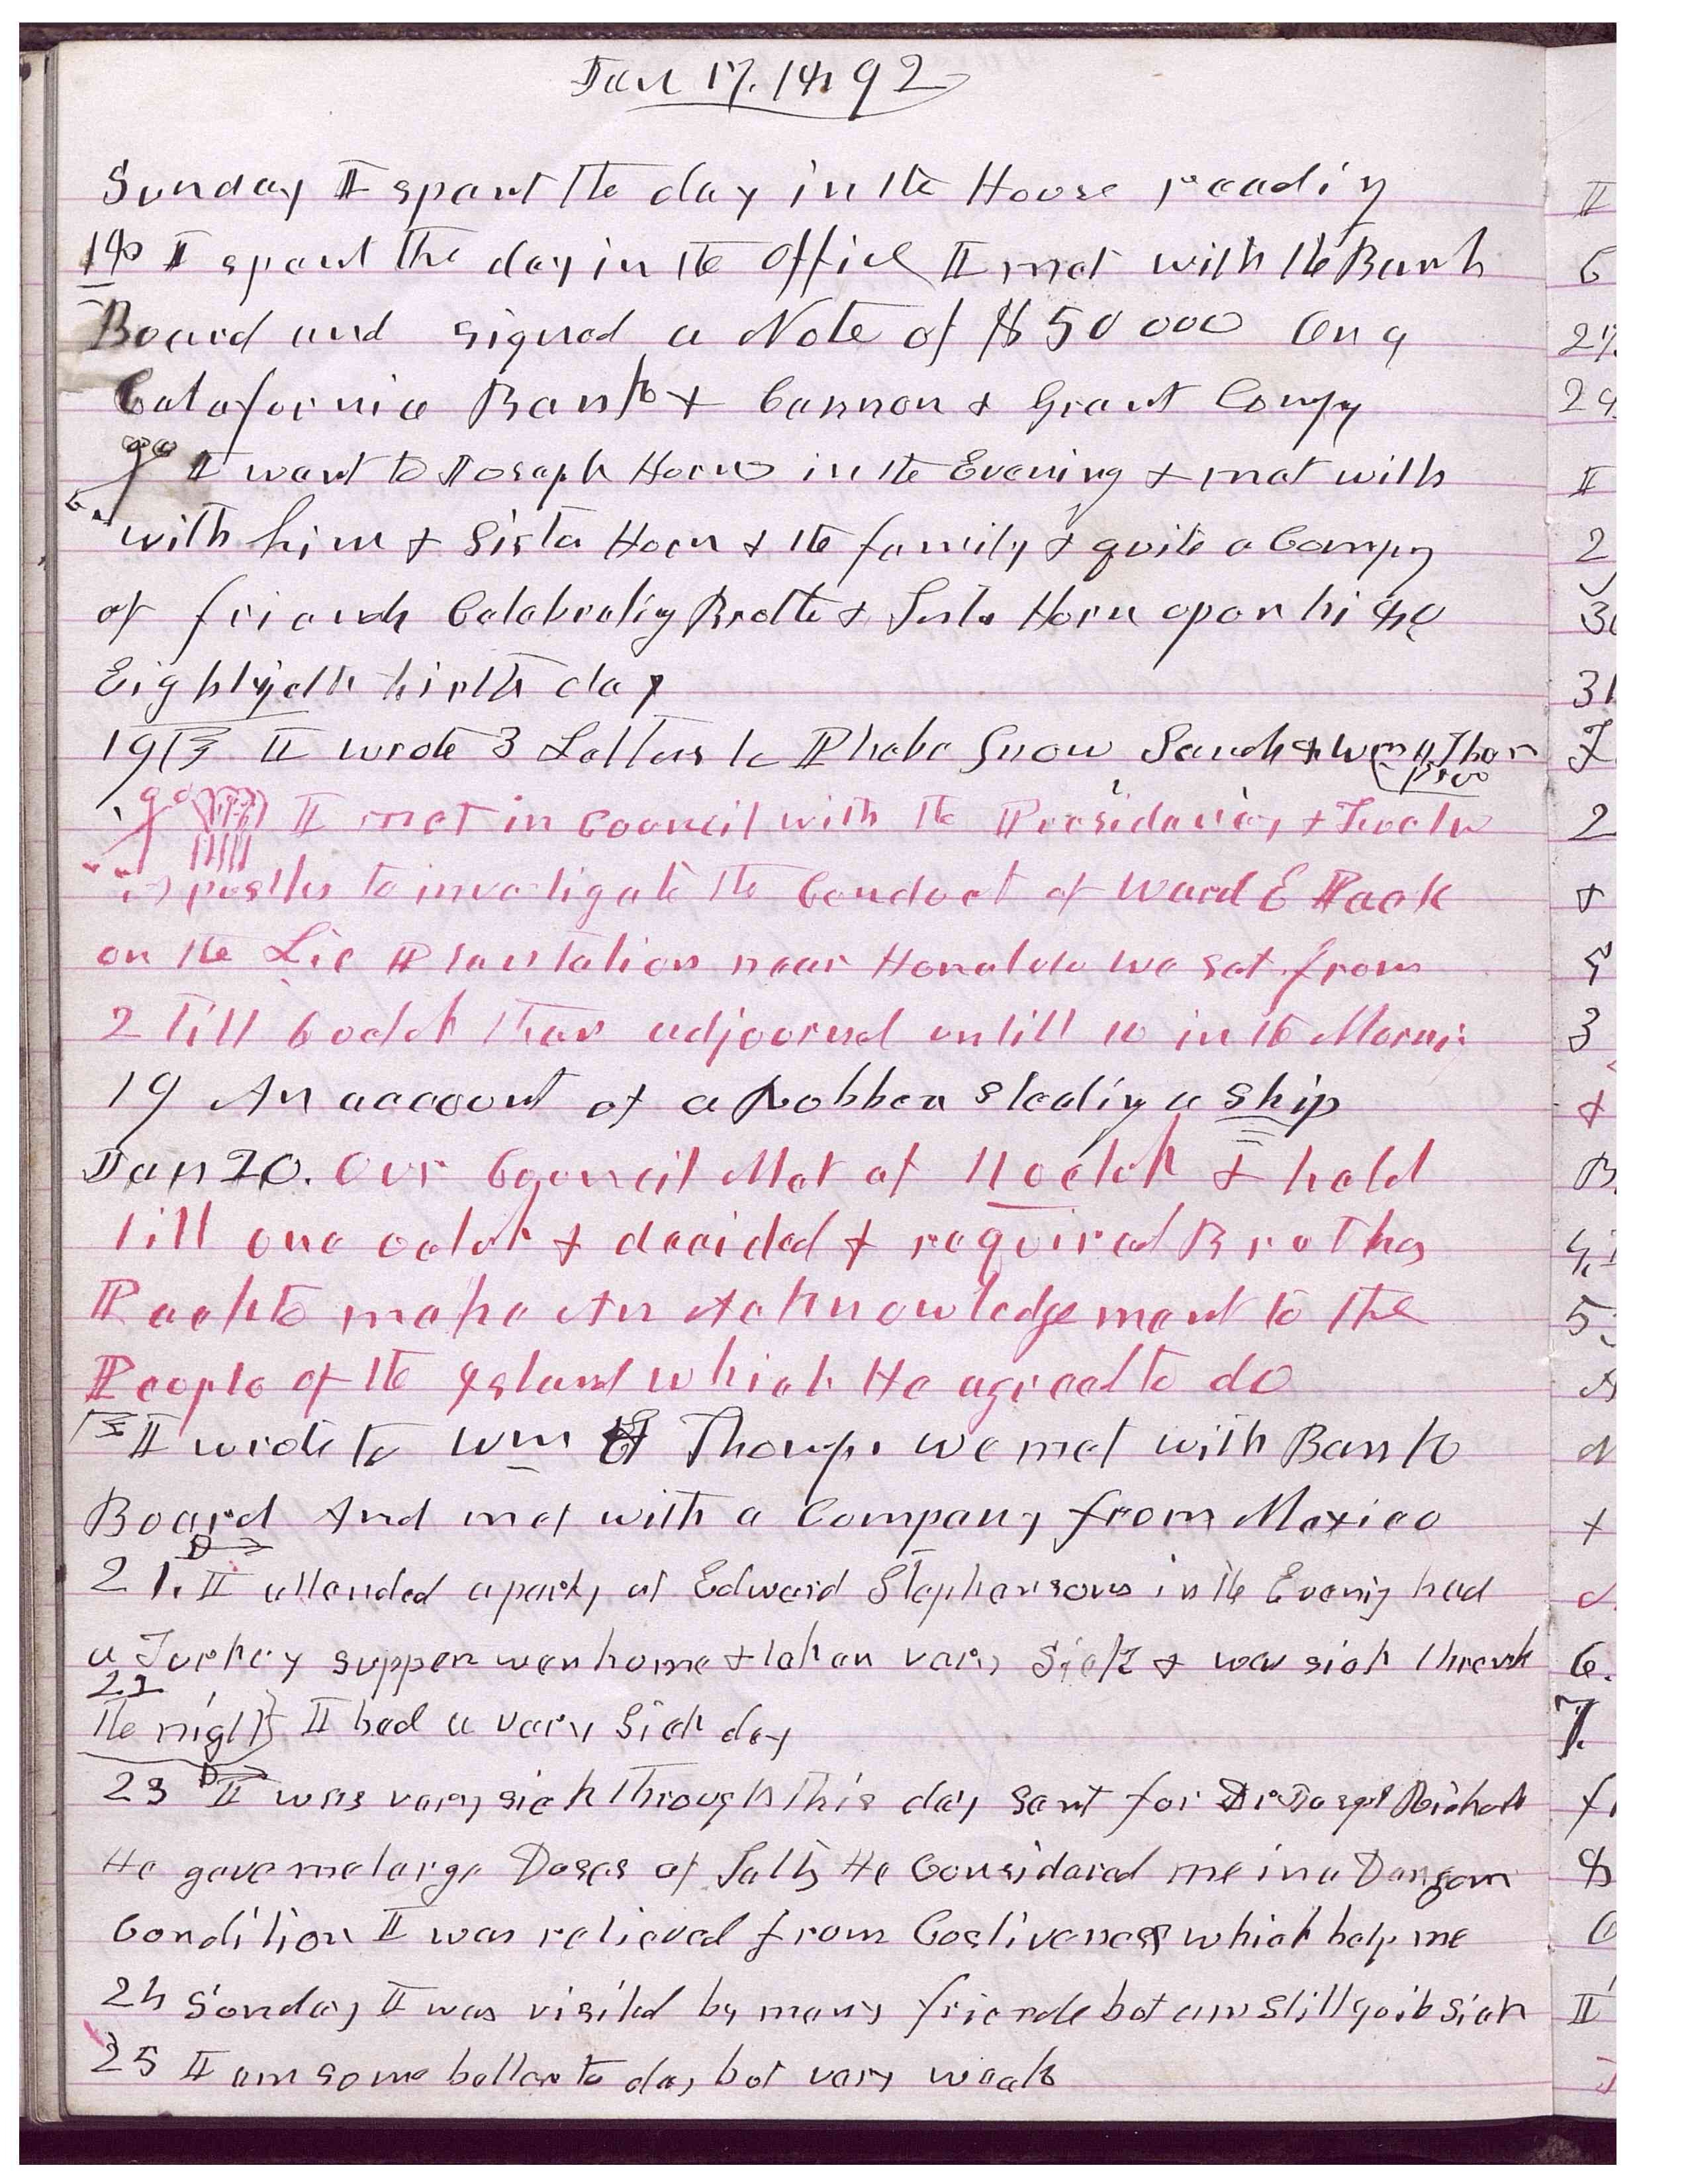 Jan 17. 1892
Sunday I spent the day in the House reading
18 I spent the day in the Office I met with the Bank
Board and signed a Note of $50000 on a
Calafornia Bank & Cannon & Grant Compy
80 I went to Joseph Horns in the Evening & met with
with him & Sister Horn & the family & quite a Compny
of friends Celebrating Brother & Sister Horn upon his
Eightyeth birth day
19 I wrote 3 Letters to Phebe Snow Sarah & Wm Thom
I met in Council with the Presidency & Twelve
Apostles to investigate the Conduct of Ward E Pack
on the Lie Plantation near Honalulu we sat from
2 till 6 oclok then adjourned untill 10 in the Morni
19 An account of a Robber stealing a ship
Jan 20. Our Council Met at 11 oclok & held
till one oclok & decided & required Brother
Pack to make An Acknowledgement to the
People of the Island which He agreed to do
I wrote to Wm Thomp. we met with Bank
Board And met with a Company from Mexico
21. I attended a party at Edward Stephensons in the Evenig had
a Turkey supper wen home & taken very Sick & was sick through
22
the night I had a very Sick day
23 I was very sick through this day sent for Dr Joseph Richards
He gave me large Doses of Salts He Considered me in a Dangerous
Condition I was relieved from Costiveness which help me
24 Sunday I was visited by many friends but am still quite sick
25 I am some better to day but very weak